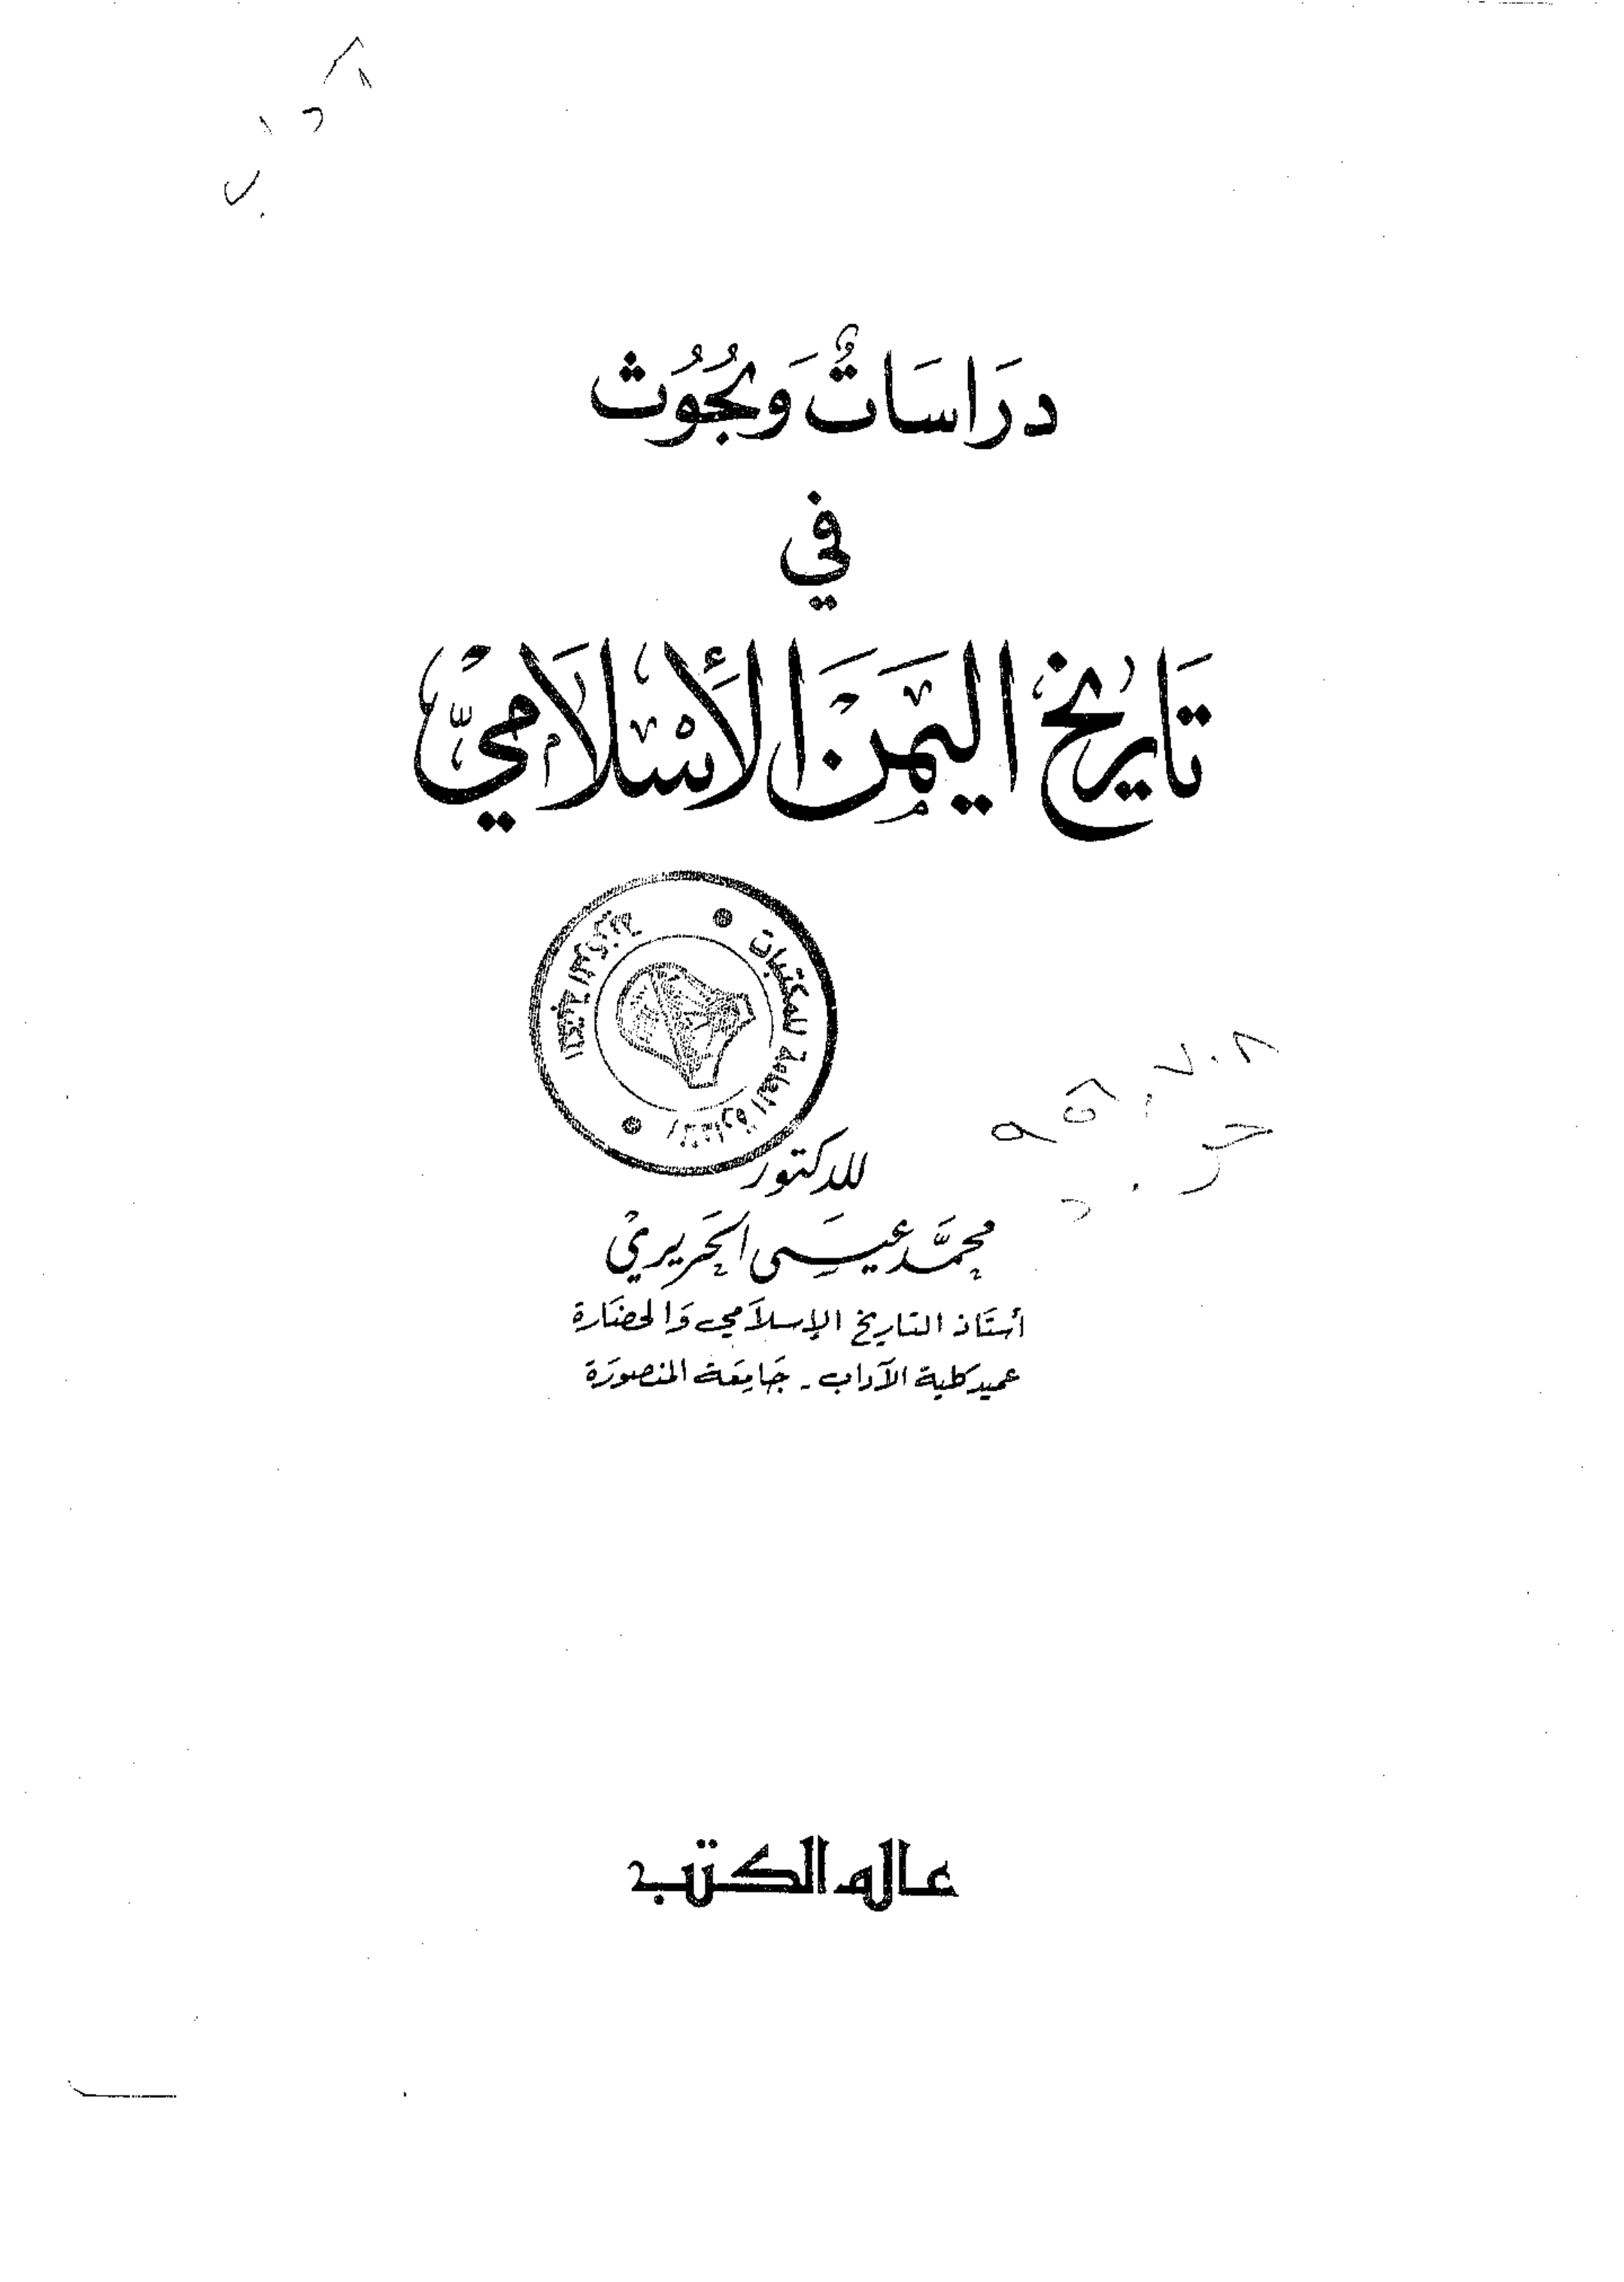 دَرَاسَاتٌ وَبُحُوث
في
تَارِيخ اليَمَن الإِسْلَامِيّ
الإدارة العامة للمكتبات
للدكتور
محمَّد عيسَى الحَريري
أستَاذ التاريخ الإسلاَمي وَالحضَارة
عميد كلية الآداب - جَامِعَة المنصورَة
عالم الكتب